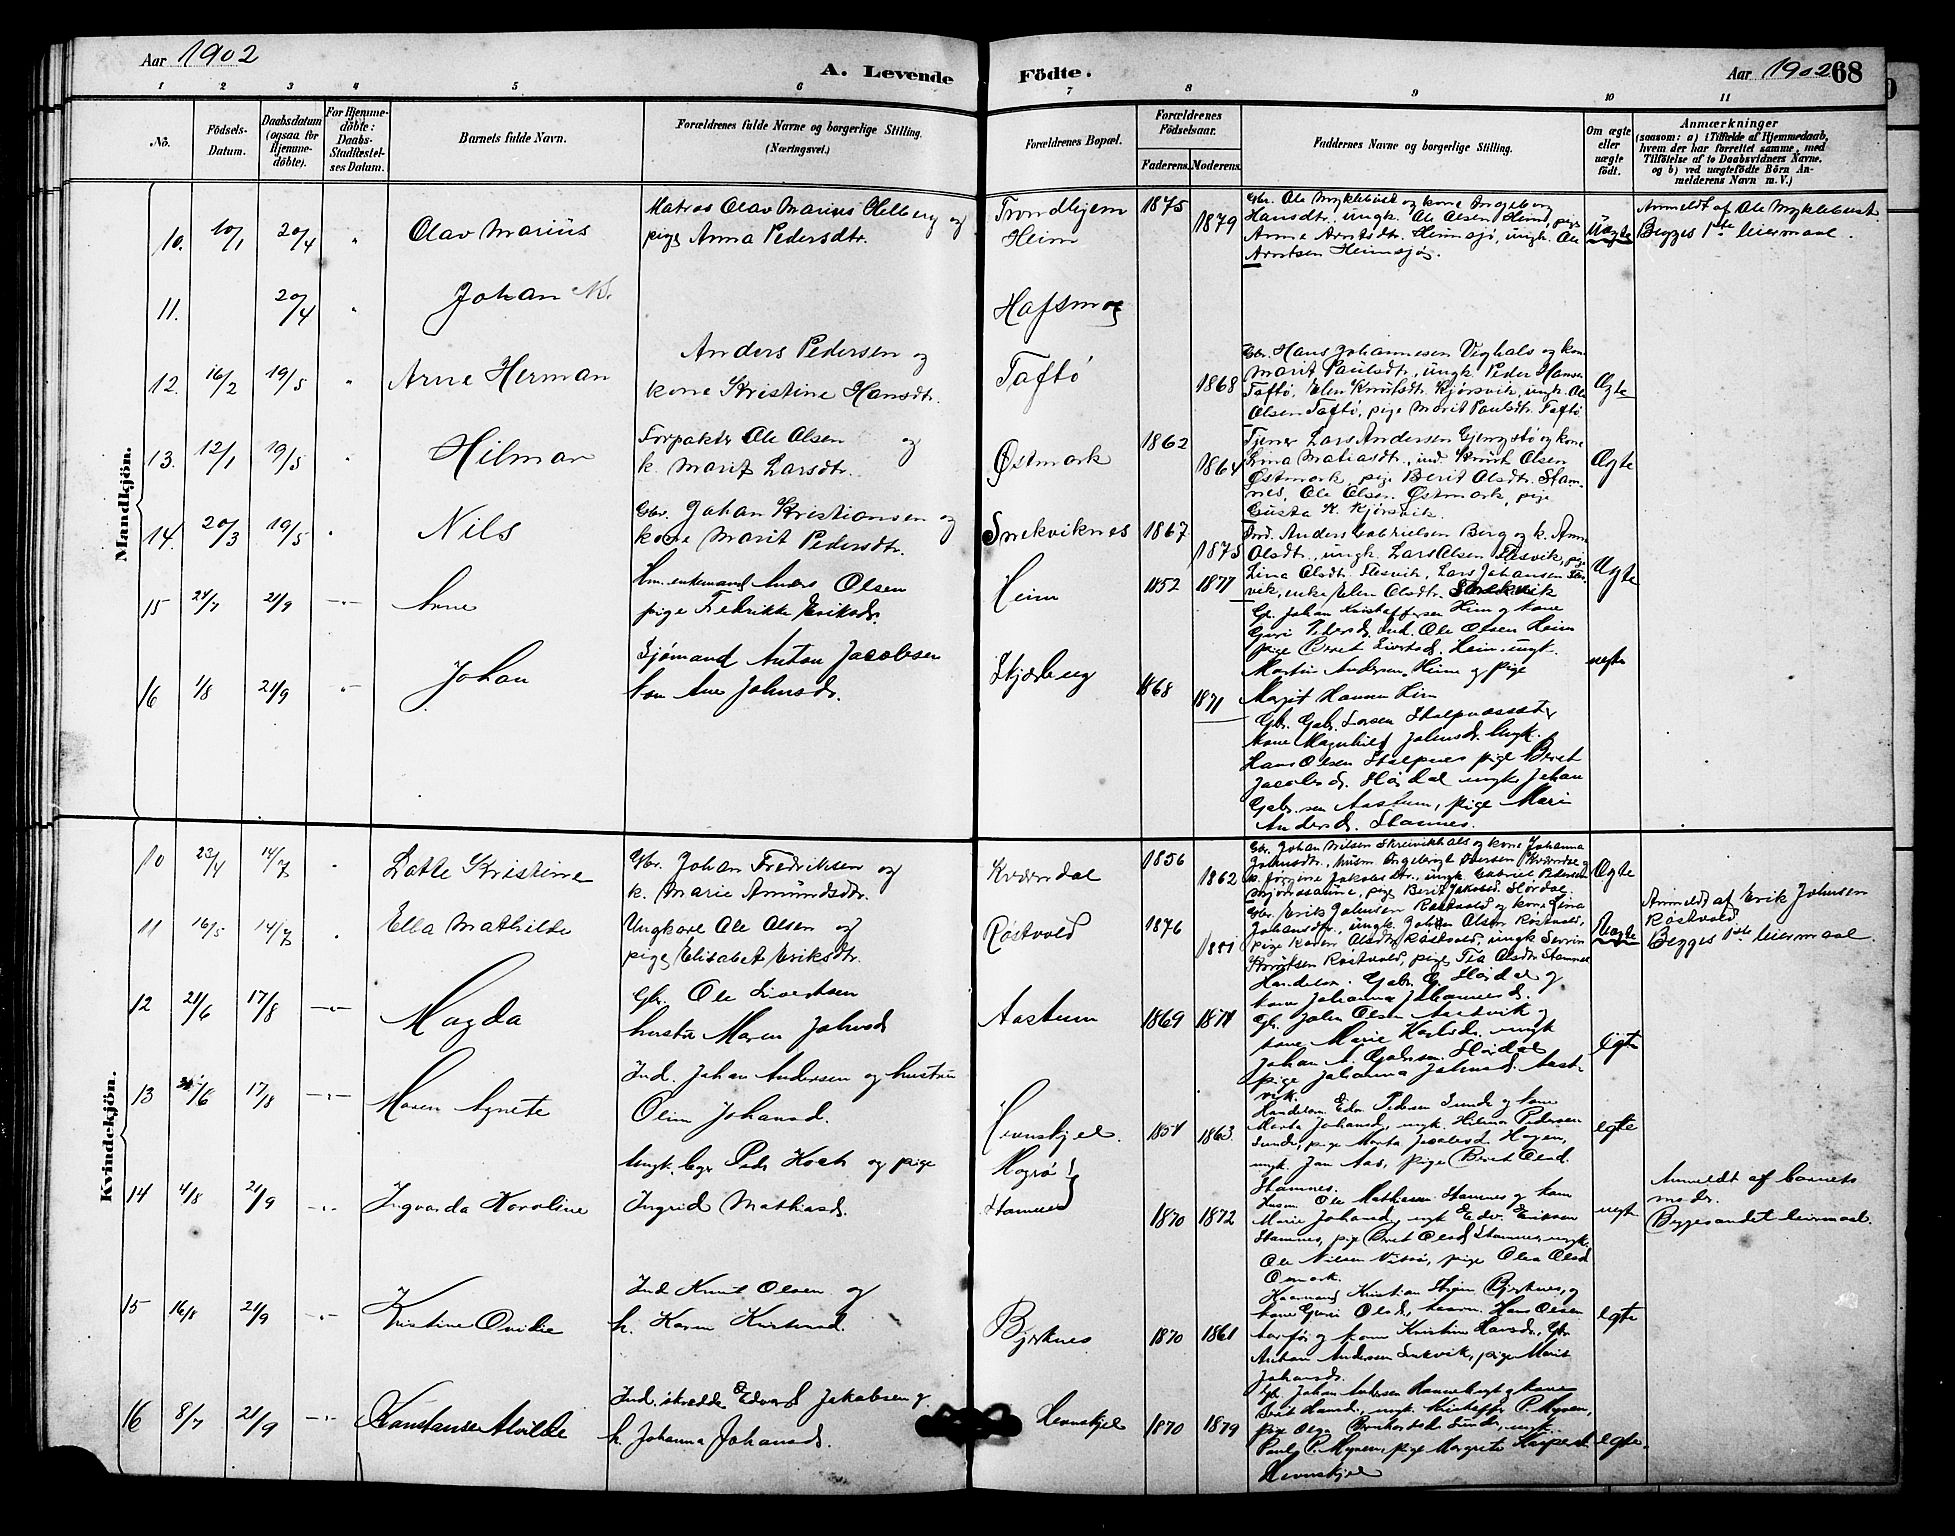 Aar 1902
A. Levende Födte.
Aar 1902 68
1 2 3 4 5 6 7 8 9 10 11
No.
Födsels-Datum.
Daabsdatum (ogsaa for Hjemme-döbte).
For Hjemme-döbte: Daabs-Stadfæstel-ses Datum.
Barnets fulde Navn.
Forældrenes fulde Navne og borgerlige Stilling.
(Næringsvei.)
Forældrenes Bopæl.
Forældrenes Födselsaar.
Faderens. Moderens.
Faddernes Navne og borgerlige Stilling.
Om ægte eller uægte födt.
Anmærkninger
(saasom: a) i Tilfælde af Hjemmedaab,
hvem der har forrettet samme, med
Tilföielse af to Daabsvidners Navne,
og b) ved uægtefödte Börn An-
melderens Navn m. V.)
Mandkjön.
10. 10/1 20/4 " Olav Marius
Matros Olav Marius Helberg og
pige Anna Pedersdtr.
Trondhjem
Heim
1875 1879
Gbr. Ole Myklebust og kone Ingeborg
Hansdtr., ungk. Ole Olsen Heim, pige
Anne Arntsdtr. Heimsjø, ungk. Ole
Arntsen Heimsjø.
Uægte
Anmeldt af Ole Myklebust
Begges 1ste leiermaal.
11. 20/4 " Johan N.
Hafsmo
12. 16/2 19/5 " Arne Herman
Anders Pedersen og
kone Kristine Hansdtr.
Taftø
1868
Gbr. Hans Johannesen Vighals og kone
Marit Paulsdtr., ungk. Peder Hansen
Taftø, Elen Knutsdtr. Kjørsvik, ungk. Ole
Olsen Taftø, pige Marit Paulsdtr. Taftø
Ægte
13. 12/1 19/5 " Hilmar
Forpakter Ole Olsen og
k. Marit Larsdtr.
Østmark
1862 1864
Tjener Lars Andersen Gjengstø og kone
Lina Matiasdtr., ind. Knut Olsen
Østmark, pige Berit Olsdtr. Stam-
nes, Ole Olsen Østmark, pige
Gusta K. Kjørsvik.
Ægte
14. 20/3 19/5 " Nils
Gbr. Johan Kristiansen og
kone Marit Pedersdtr.
Snekviknes
1867 1875
Ind. Anders Gabrielsen Berg og k. Anne
Olsdtr., ungk. Lars Olsen Flesvik, pige
Lina Olsdtr. Flesvik, Lars Johansen
vik, enke Elen Olsdtr.
Ægte
15 24/7 21/9 —"— Arne
Hm. enkemand Anders Olsen
pige Fredrikke Eriksdr.
Heim
1852 1877
Gb. Johan Kristoffersen Heim og kone
Guri Pedersd. Ind. Ole Olsen Heim
pige Beret Sivertsd. Heim, ungk.
Martin Andersen Heim og pige
Margit Hansen Heim
uegte
16 1/8 21/9 —"— Johan
Sjømand Anton Jacobsen
kone Ane Johnsdr.
Skjærberg
1868 1871
Gbr. Gabr. Larsen Stolpnesset
kone Magnhild Johnsdr. Ungk.
Hans Olsen Stolpnes pige Beret
Jacobsd. Hørdal ungk. Johan
Gabr.sen Aastum, pige Mari
Andersd. Stamnes.
Kvindekjön.
10 23/4 14/7 " Lotte Kristine
Gbr. Johan Fredriksen og
k. Marie Amundsdtr.
Kværndal
1856 1862
Gbr. Johan Nilsen Skreivikhals og kone Johanna
Johnsdtr., husm. Ingebrigt Iversen Kværndal og
k. Jørgine Jakobsdtr., ungk. Gabriel Pedersen
, pige Berit Jakobsd. Hørdal.
Ægte
11 16/5 14/7 " Ella Mathilde
Ungkare Ole Olsen og
pige Elisabet Eriksdtr.
Røstvold
1876 1881
Gbr. Erik Johnsen Røstvold og kone Lina
Johansdtr., ungk. Johan Olsen Røstvold,
pige Karen Olsdtr. Røstvold, ungk. Sevrin
Knutsen Røstvold, pige Tea Olsdtr. Stamnes
Uægte
Anmeldt af Erik Johnsen
Røstvold
Begges 1ste leiermaal.
12 21/6 17/8 —"— Magda
Gbr. Ole Sivertsen
hustru Maren Johnsd
Aastum
1869 1871
Handelsm. Gabr. G. Hørdal og
kone Johanna Johannesd.
Gb. John Olsen Aastvik og
kone Marie Karlsdr. ungk
Johan A. Gabrsen. Hørdal
pige Johanna Johnsd. Aast-
vik.
egte
13 /6 17/8 —"— Maren Agnete
Ind. Johan Andersen og hustru
Oline Johansd.
Hevnskjel.
1857 1863.
Handelsm. Edv. Pedersen Sunde og kone
Marta Johansd., ungk. Hilmar Pedersen
Sunde, pige Marta Jacobsd. Hagen,
ungk. Jon Aas, pige Beret Olsd.
Stamnes.
egte
14 4/8 21/9 —"— Ingvarda Karoline
Ungk. Peder Koch og pige
Ingrid Mathiasd.
Magrø }
Stamnes
1870 1872
Husm. Ole Mathisen Stamnes og kone
Marie Johansd, ungk Edv. Eriksen
Stamnes, pige Beret Olsd Stamnes, ungk.
Ole Nilsen Vitsø, pige Olea Olsd
Osmark.
uegte
Anmeldt af barnets
moder.
Begges andet leiermaal.
15 16/8 21/9 —"— Kristine Ovidie
Ind Knut Olsen og
h. Karen Kristensd.
Bjerknes
1870 1861
Kaarmand Kristian Bjerknes, og
kone Guri Olsd., Hans Olsen
og kone Kristine Hansdr., Gbr
Anton Andersen Snekvik, pige Marit
Johansd.
egte
16 8/7 21/9 —"— Konstanse Alvilde
Ind. skredder Edvard Jakobsen og
h. Johanna Johansd.
Hevnskjel
1870 1879
Gb. Johan Andersen og kone
Berit Hansd., ungk. Kristoffer P. Myren,
pige Olga Bernhardsd. Sunde, ungk.
Paul P. Myren, pige Margrete Kaspersd.
Hevnskjel
egte.